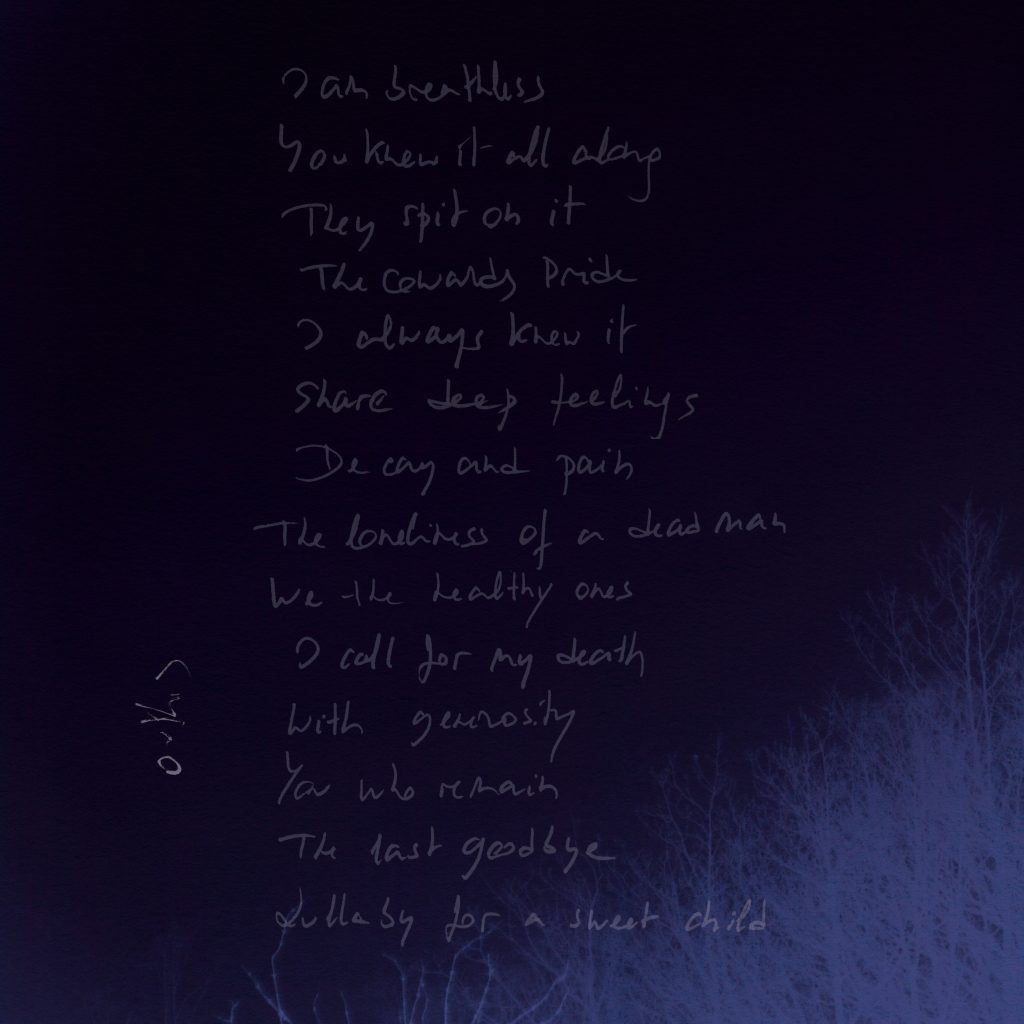 I am breathless
You knew it all along
They spit on it
The cowards pride
I always knew it
Share deep feelings
Decay and pain
The loneliness of a dead man
We the healthy ones
I call for my death
With generosity
You who remain
The last goodbye
Lullaby for a sweet child